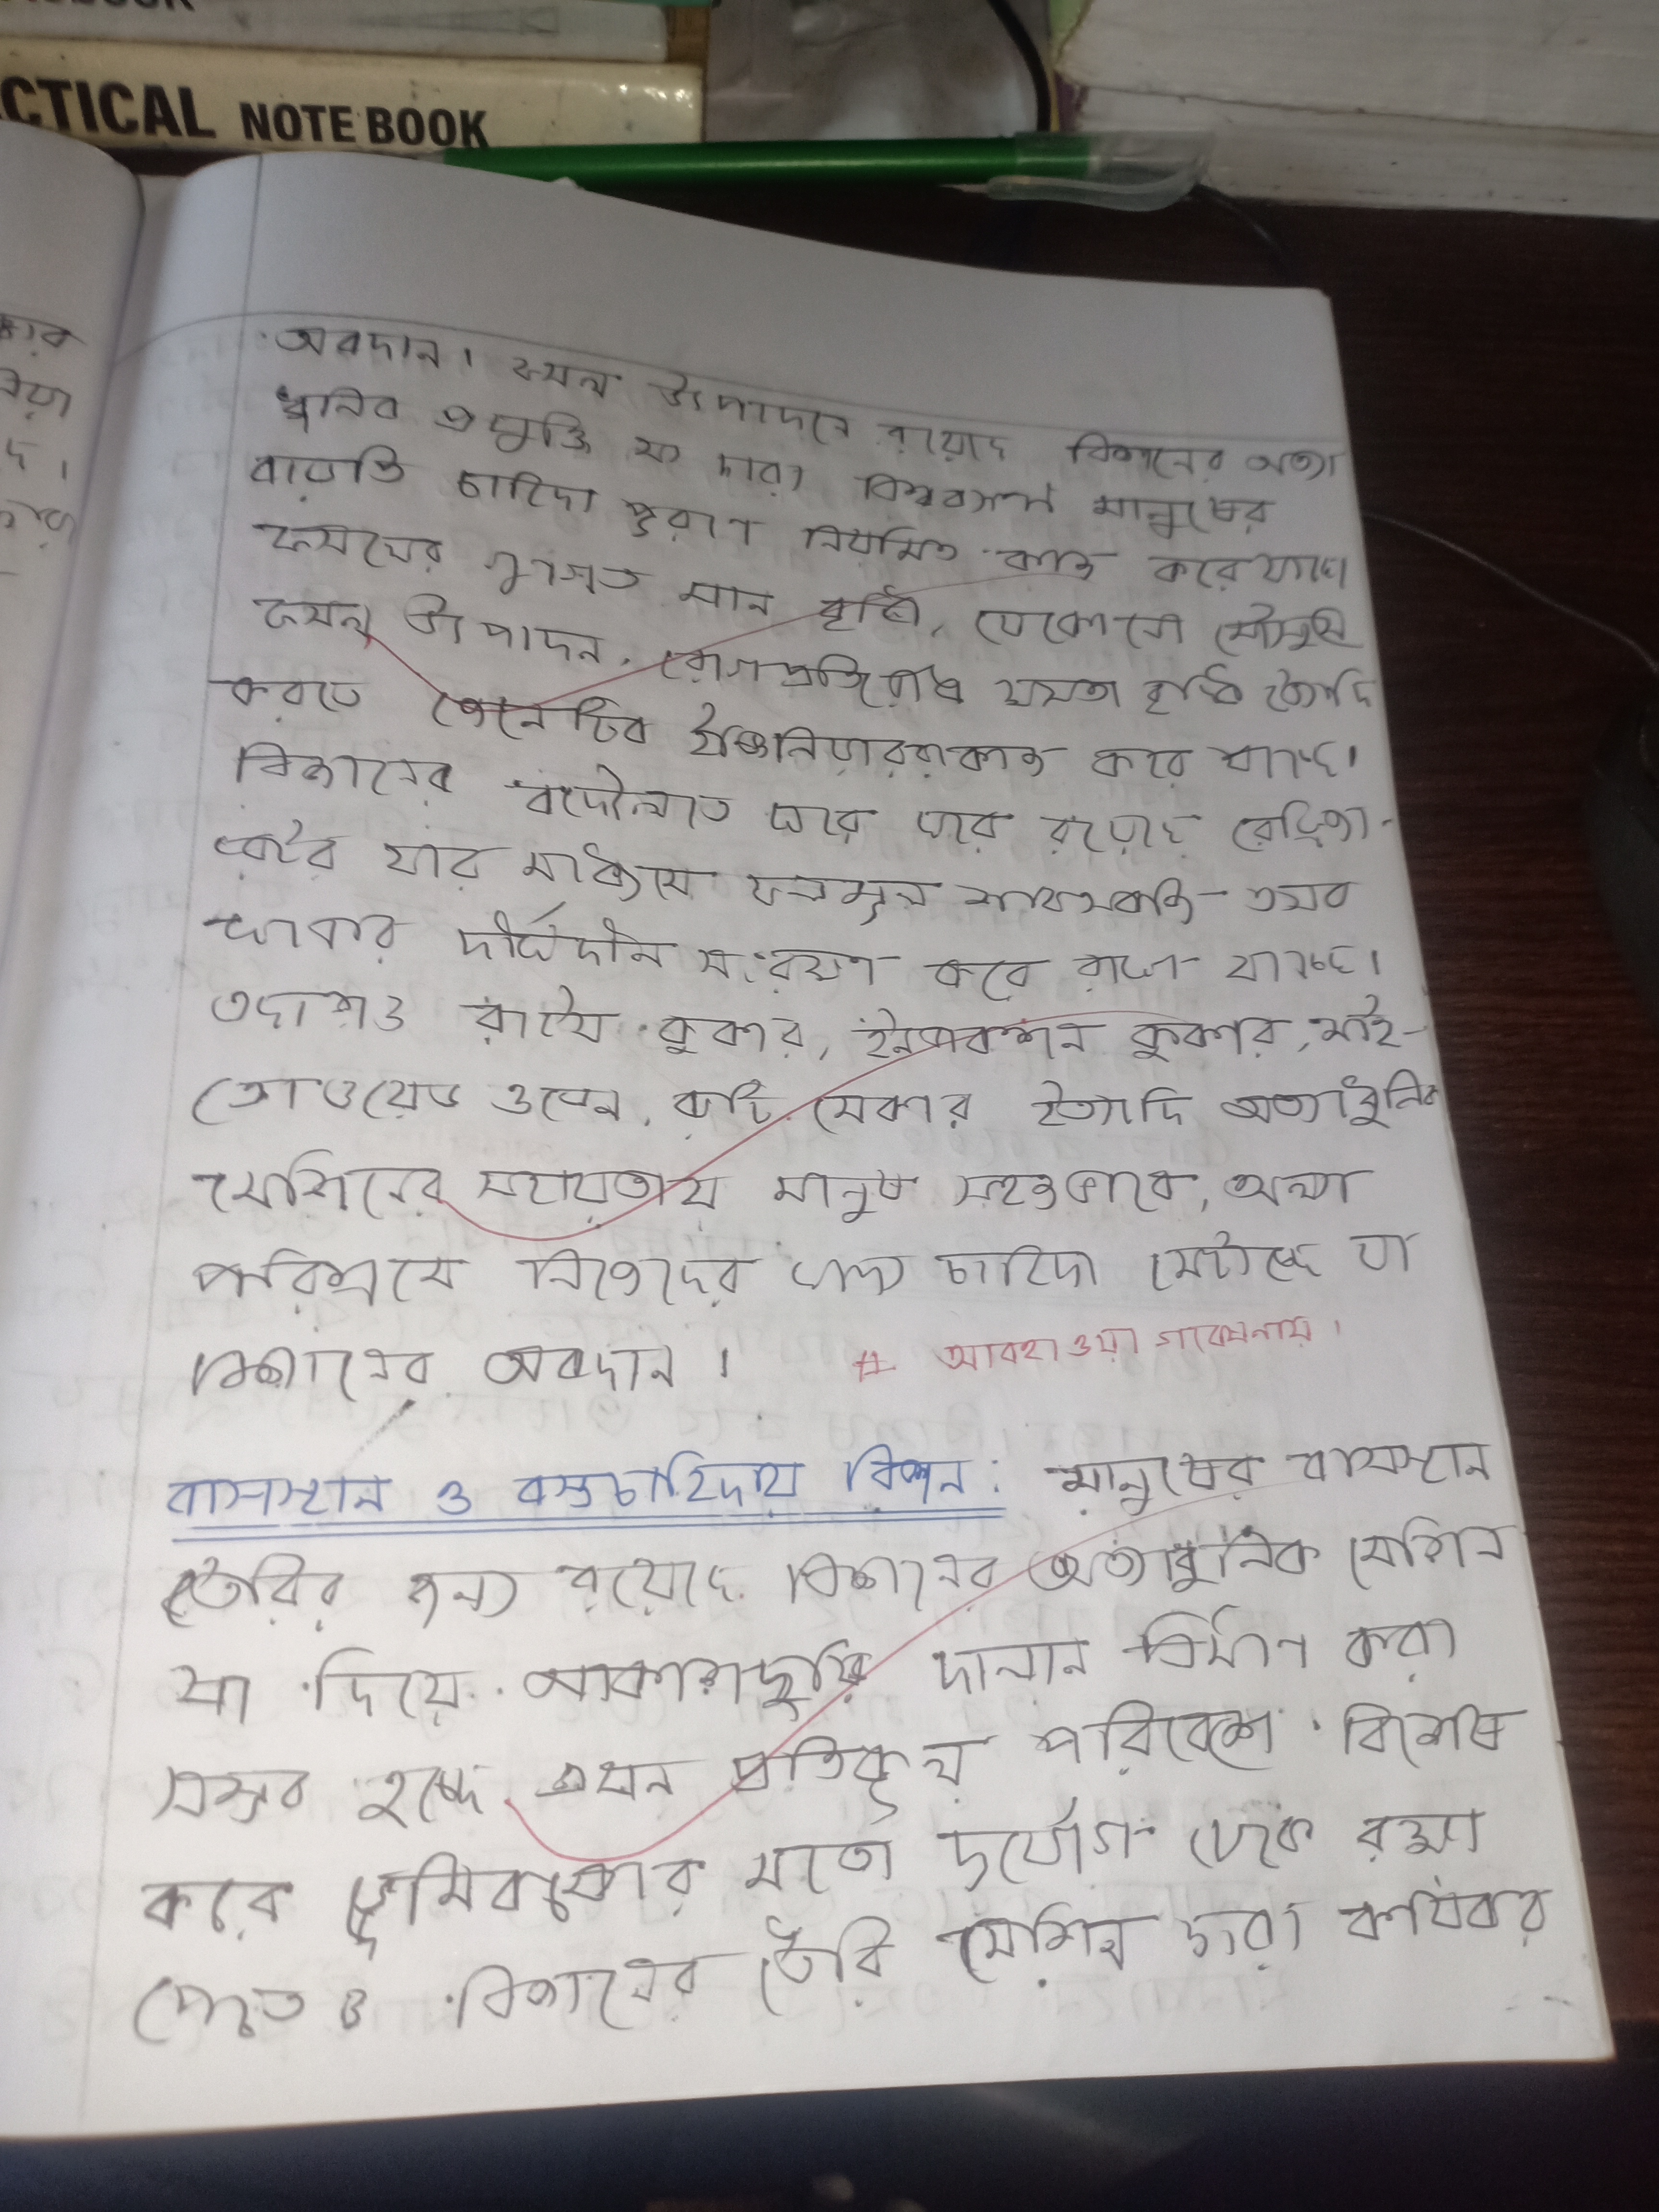 CTICAL NOTE BOOK
অবদান। ফসল উৎপাদনে রয়েছে বিজ্ঞানের অত্যা
ধুনিক প্রযুক্তি যা দ্বারা মানুষের
বাড়তি চাহিদা পূরণে নিয়মিত কাজ করে যাচ্ছে।
ফসলের গুণগত মান বৃদ্ধি, যেকোনো মৌসুমে
ফসল উৎপাদন, রোগপ্রতিরোধ ক্ষমতা বৃদ্ধি ইত্যাদি
করতে জেনেটিক ইঞ্জিনিয়াররা কাজ করে যাচ্ছে।
বিজ্ঞানের বদৌলতে ঘরে ঘরে রয়েছে রেফ্রিজা-
রেটর যার মাধ্যমে ফলমূল শাকসবজি
খাবার দীর্ঘদীন সংরক্ষণ করে রাখা যাচ্ছে।
তাছাড়াও রাইস কুকার, ইনডাকশন কুকার, মাই-
ক্রোওয়েভ ওভেন, রুটি মেকার ইত্যাদি অত্যাধুনিক
মেশিনের সহায়তায় মানুষ সহজভাবে, অল্প
পরিশ্রমে নিজেদের খাদ্য চাহিদা মেটাচ্ছে যা
বিজ্ঞানের অবদান।
# আবহাওয়া গবেষনায়।
বাসস্থান ও বস্ত্রচাহিদায় বিজ্ঞান: মানুষের বাসস্থান
তৈরির জন্য রয়েছে বিজ্ঞানের অত্যাধুনিক মেশিন
যা দিয়ে আকাশছুঁয়ি দালান নির্মাণ করা
সম্ভব হচ্ছে এখন প্রতিকূল পরিবেশে বিশেষ
করে ভূমিকম্পের মতো দুর্যোগ থেকে রক্ষা
পেতেও বিজ্ঞানের তৈরি মেশিন দ্বারা কার্যকর